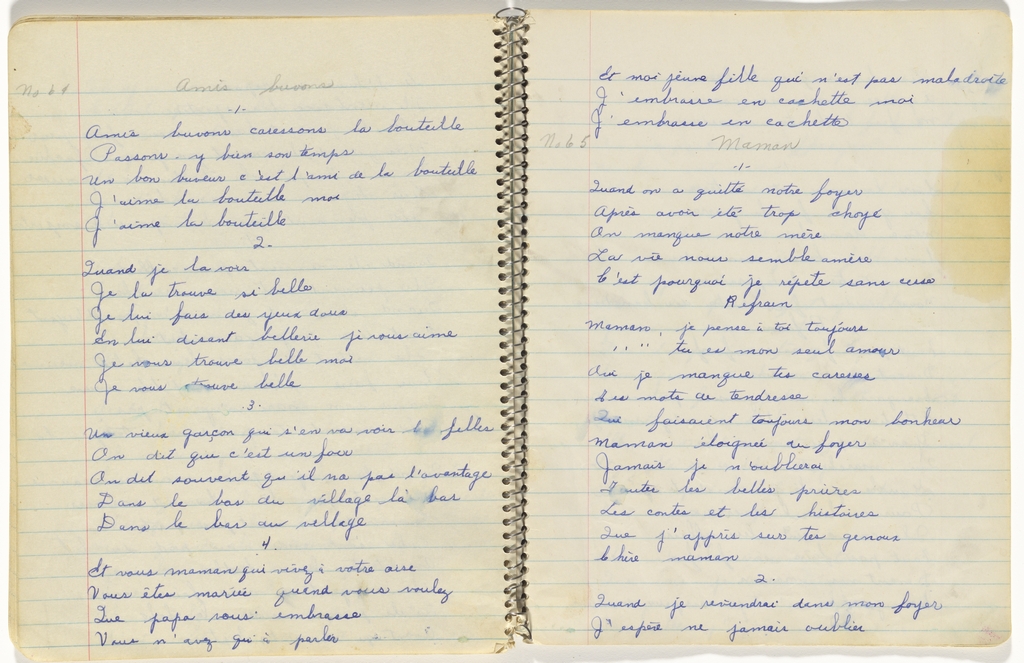 No 64 Amis buvons
-1-
Amis buvons caressons la bouteille
Passons-y bien son temps
Un bon buveur c'est l'ami de la bouteille
J'aime la bouteille moi
J'aime la bouteille
2-
Quand je la vois
Je la trouve si belle
Je lui fais des yeux doux
En lui disant bellerie je vous aime
Je vous trouve belle moi
Je vous trouve belle
.3.
Un vieux garçon qui s'en va voir les filles
On dit que c'est un fou
On dit souvent qu'il na pas l'avantage
Dans le bas du village là bas
Dans le bas du village
4.
Et vous maman qui vivez à votre aise
Vous êtes mariée quand vous voulez
Que papa vous embrasse
Vous n'avez qu'à parler
Et moi jeune fille qui n'est pas maladroite
J'embrasse en cachette moi
J'embrasse en cachette
No 65 Maman
-1-
Quand on a quitté notre foyer
Après avoir été trop choyé
On manque notre mère
La vie nous semble amère
C'est pourquoi je répète sans cesse
Refrain
Maman, je pense à toi toujours
" " tu es mon seul amour
Oui je manque tes caresses
Tes mots de tendresse
Qui faisaient toujours mon bonheur
Maman éloignée du foyer
Jamais je n'oublierai
Toutes les belles prières
Les contes et les histoires
Que j'appris sur tes genoux
Chère maman
2.
Quand je reviendrai dans mon foyer
J'espère ne jamais oublier